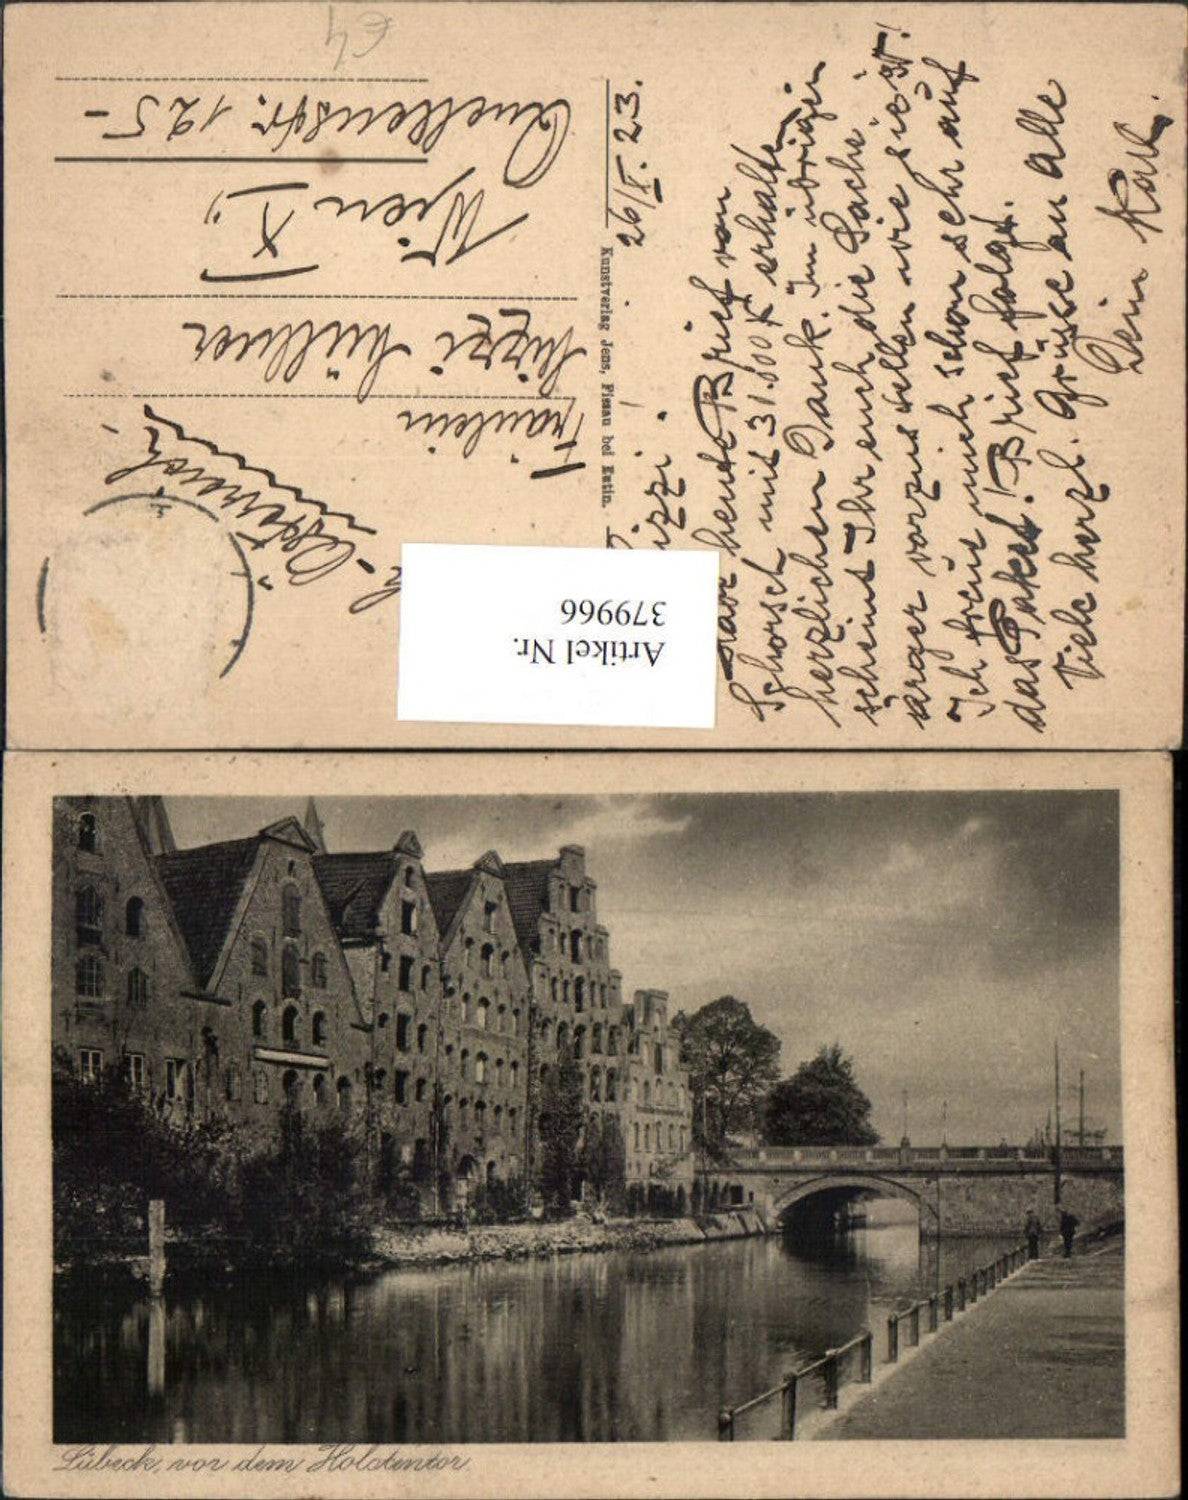 €4
D.-Österreich!
Fräulein
Mizzi Müllner
Wien X.,
Quellenstr. 125-
Kunstverlag Jens, Pissau bei Eutin.
26/X. 23.
Mizzi!
Habe heute Brief von
Schorsch mit 31.000 K erhalten,
herzlichen Dank. Im übrigen
scheint Ihr euch die Sache
ärger vorzustellen wie sie ist!
Ich freue mich schon sehr auf
das Paket! Brief folgt.
Viele herzl. Grüsse an alle
Dein Karl.
Artikel Nr.
379966
Lübeck, vor dem Holstentor